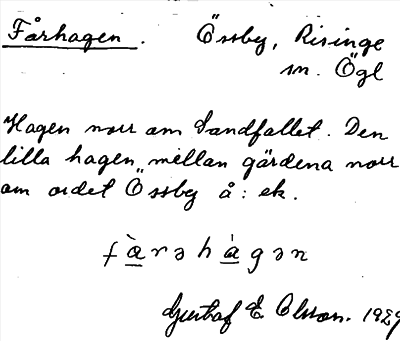 Fårhagen. Össby, Risinge
sn. Ögl
Hagen norr om Sandfallet. Den
lilla hagen mellan gärdena norr
om ordet Össby å: ek.
fàrəhàgən
Gustaf E Olsson. 1929